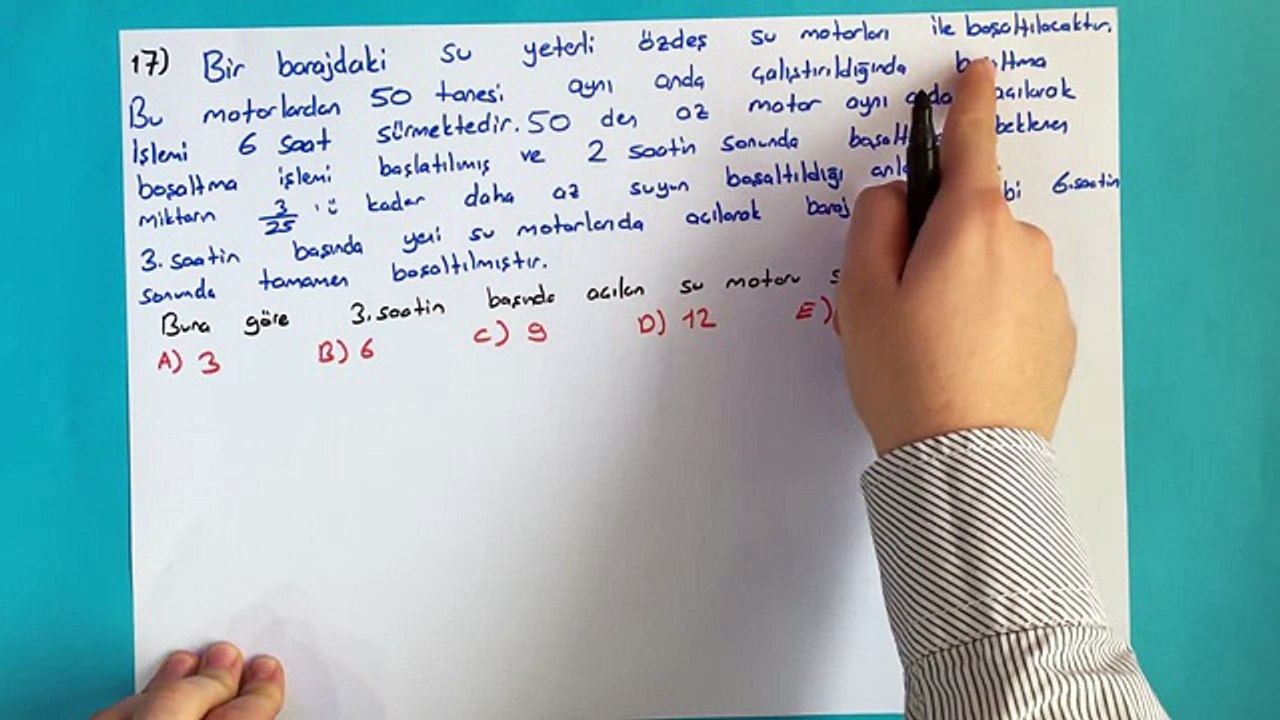 17) Bir barajdaki su yeterli özdeş su motorları ile boşaltılacaktır.
Bu motorlardan 50 tanesi aynı anda çalıştırıldığında
işlemi 6 saat sürmektedir. 50 den az motor aynı açılarak
boşaltma işlemi başlatılmış ve 2 saatin sonunda beklenen
miktarın 3/25 'ü kadar daha az suyun boşaltıldığı 6.saatin
3. saatin başında yeni su motorlarıda açılarak
sonunda tamamen boşaltılmıştır.
Buna göre 3.saatin başında açılan su motoru
A) 3 B) 6 C) 9 D) 12 E)